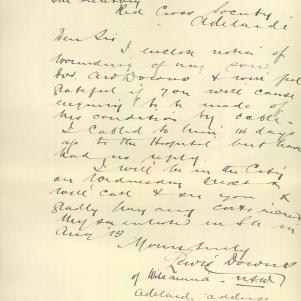 The Secretary
Red Cross Society
Adelaide
Dear Sir
I enclose notice of
wounding of my son
Downs & will feel
grateful if you will cause
enquiry to be made of
his condition by cable.
I cabled to him 14 days
ago to the Hospital but have
had no reply.
I will be in the City
on Wednesday next &
will call & see you &
gladly pay any costs incurred
My son enlisted in S.A. in
Aug 15
Yours truly
Downs
of Wilcannia - NSW
Adelaide address